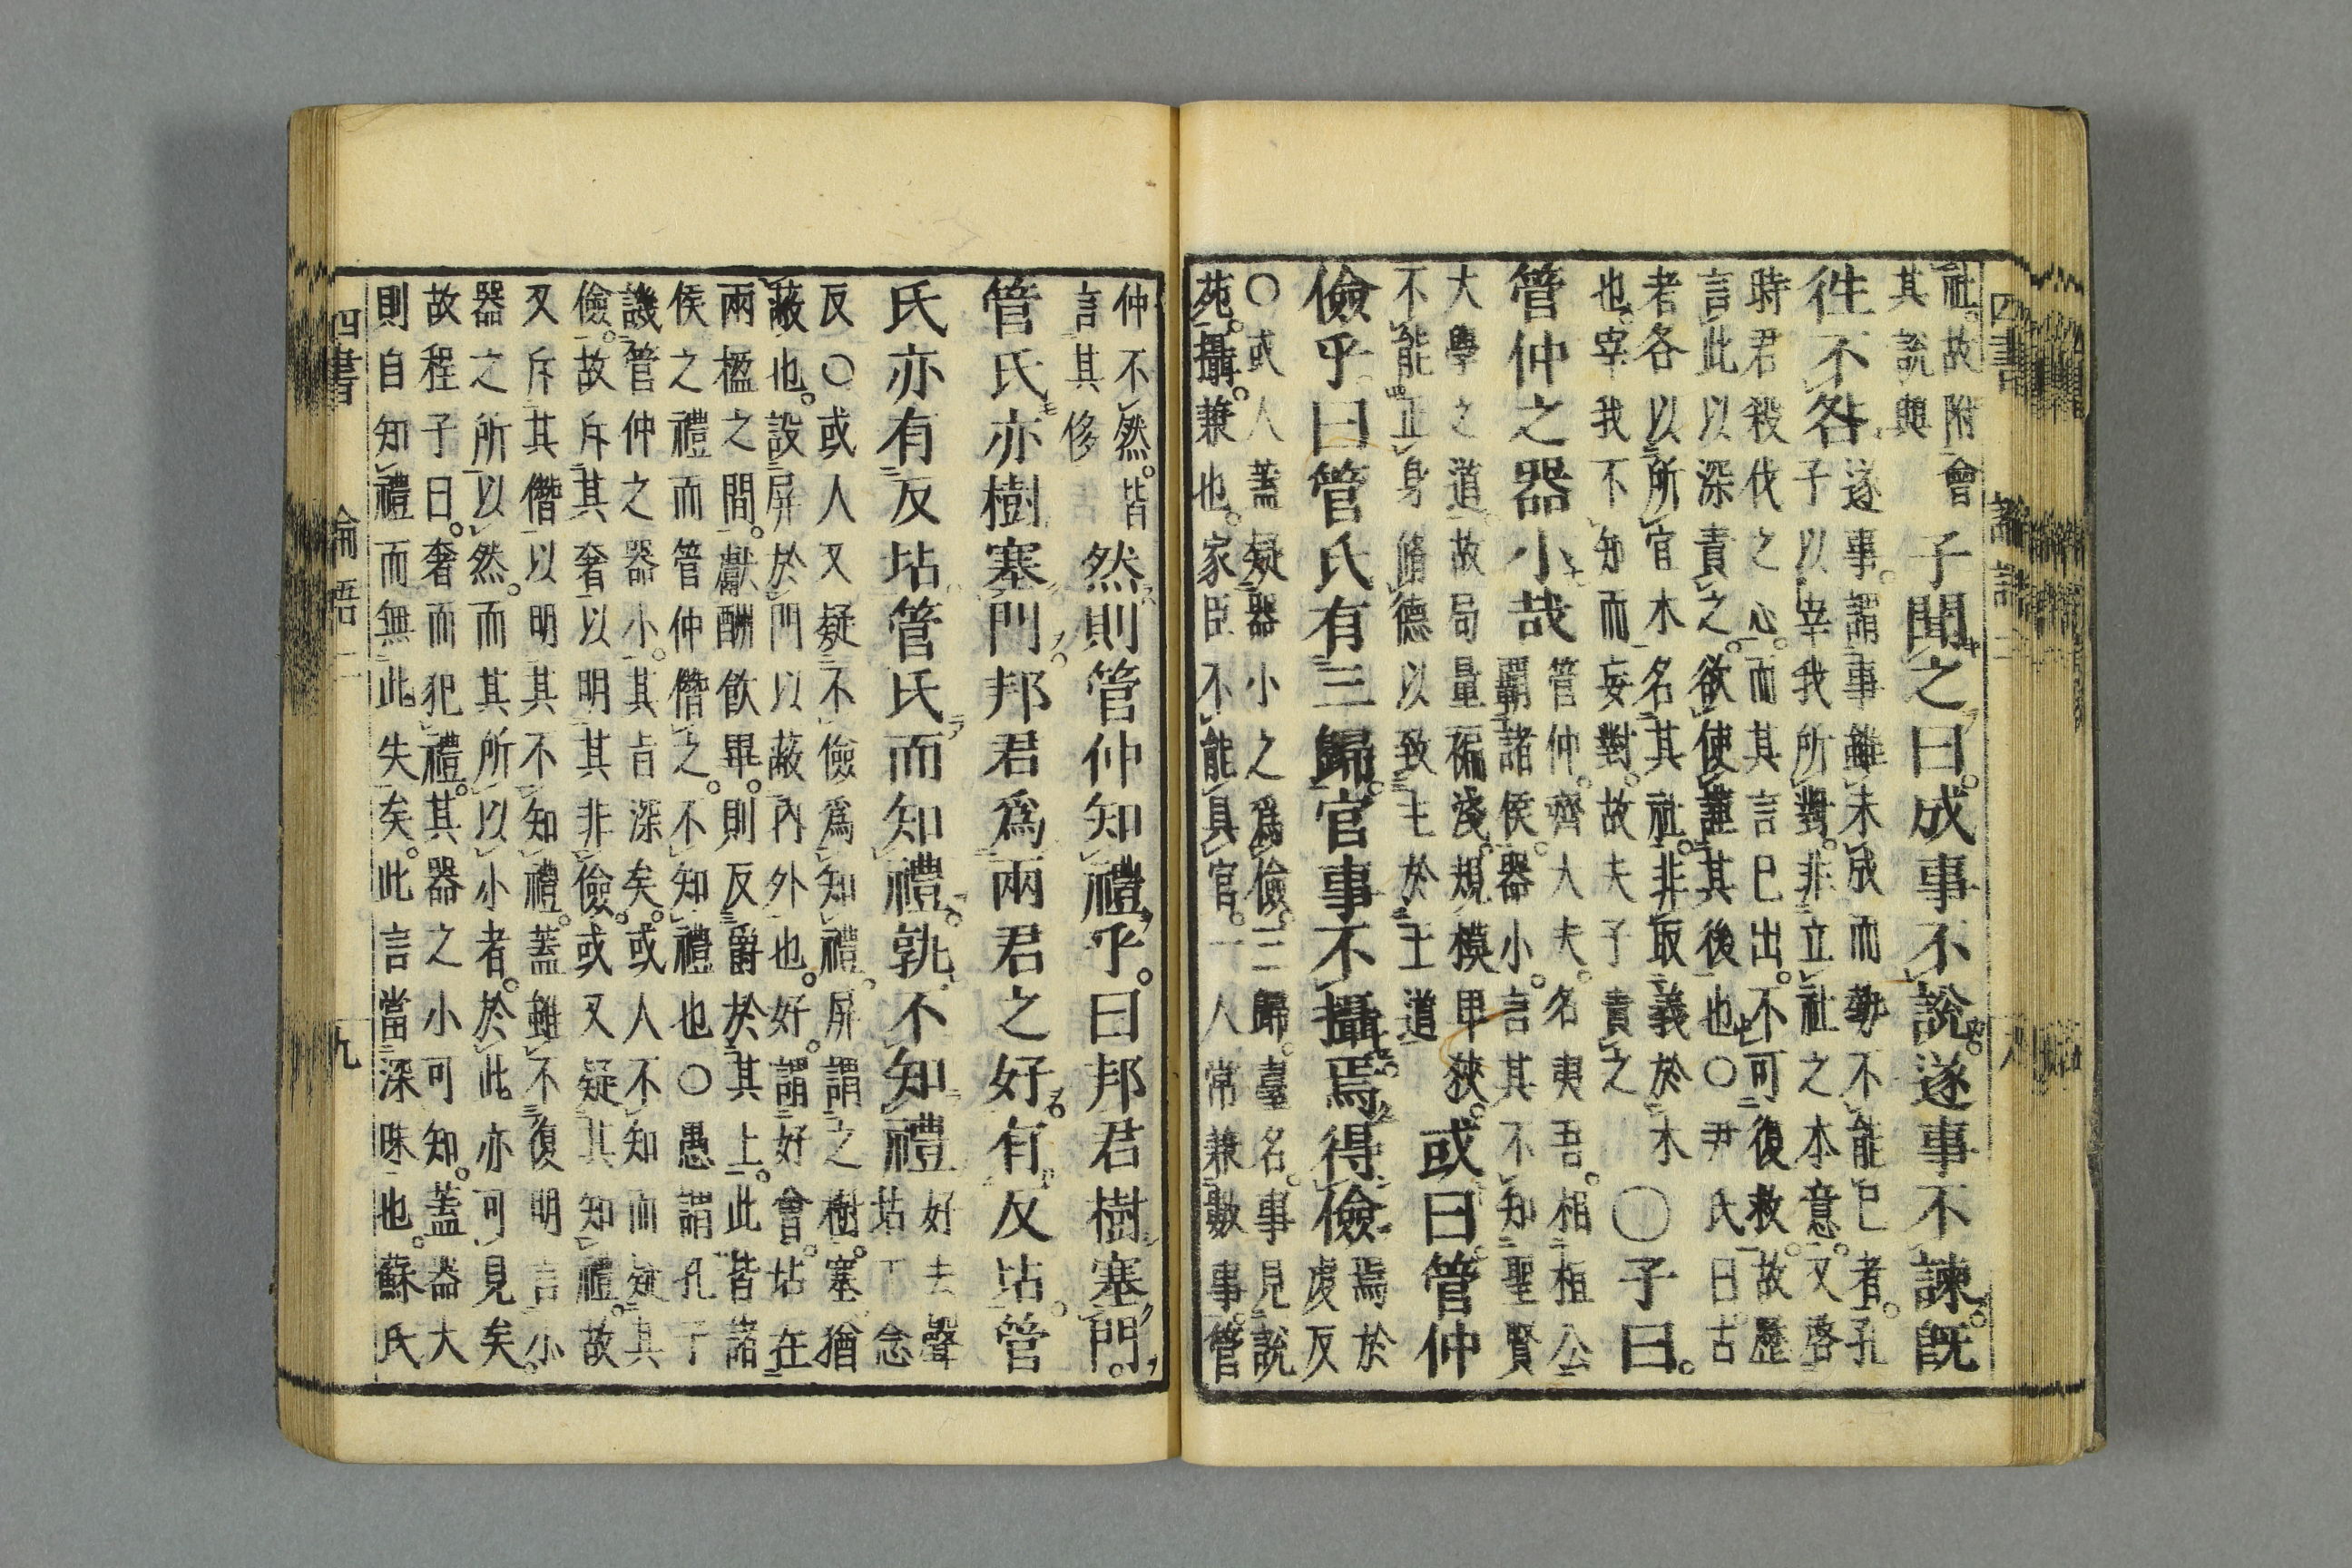 社。故附會
其說與
子聞之曰。成事不說。遂事不諫。既
徃不咎
遂事。謂事雖未成而勢不能已者。孔
子以宰我所對。非立社之本意。又啓
時君殺伐之心。而其言已出。不可復救。故歷
言此以深責之。欲使謹其後也○尹氏曰。古
者各以所宜木名其社。非取義於木
也。宰我不知而妄對。故夫子責之
○子曰。
管仲之器小哉
管仲。齊大夫。名夷吾。相桓公
霸諸侯。器小。言其不知聖賢
大學之道。故局量褊淺。規模卑狹。
不能正身脩德以致主於王道
或曰管仲
儉乎曰管氏有三歸。官事不攝。焉得儉
焉於
虔反
○或人蓋疑器小之爲儉。三歸。臺名。事見說
苑。攝。兼也。家臣不能具官。一人常兼數事。管
四書 論語二 九
仲不然。皆
言其侈
然則管仲知禮乎。曰邦君樹塞門。
管氏亦樹塞門。邦君爲兩君之好。有反坫。管
氏亦有反坫管氏而知禮。孰不知禮
好去聲
坫丁念
反○或人又疑不儉爲知禮。屏謂之樹。塞猶
蔽也。設屏於門以蔽內外也。好。謂好會。坫在
兩楹之間。獻酬飲畢。則反爵於其上。此皆諸
侯之禮而管仲僭之。不知禮也○愚謂孔子
譏管仲之器小。其㫖深矣。或人不知而疑其
儉。故斥其奢以明其非儉。或又疑其知禮。故
又斥其僭以明其不知禮。蓋雖不復明言小
器之所以然。而其所以小者。於此亦可見矣。
故程子曰。奢而犯禮。其器之小可知。蓋器大
則自知禮而無此失矣。此言當深味也。蘇氏
四書 論語二 九